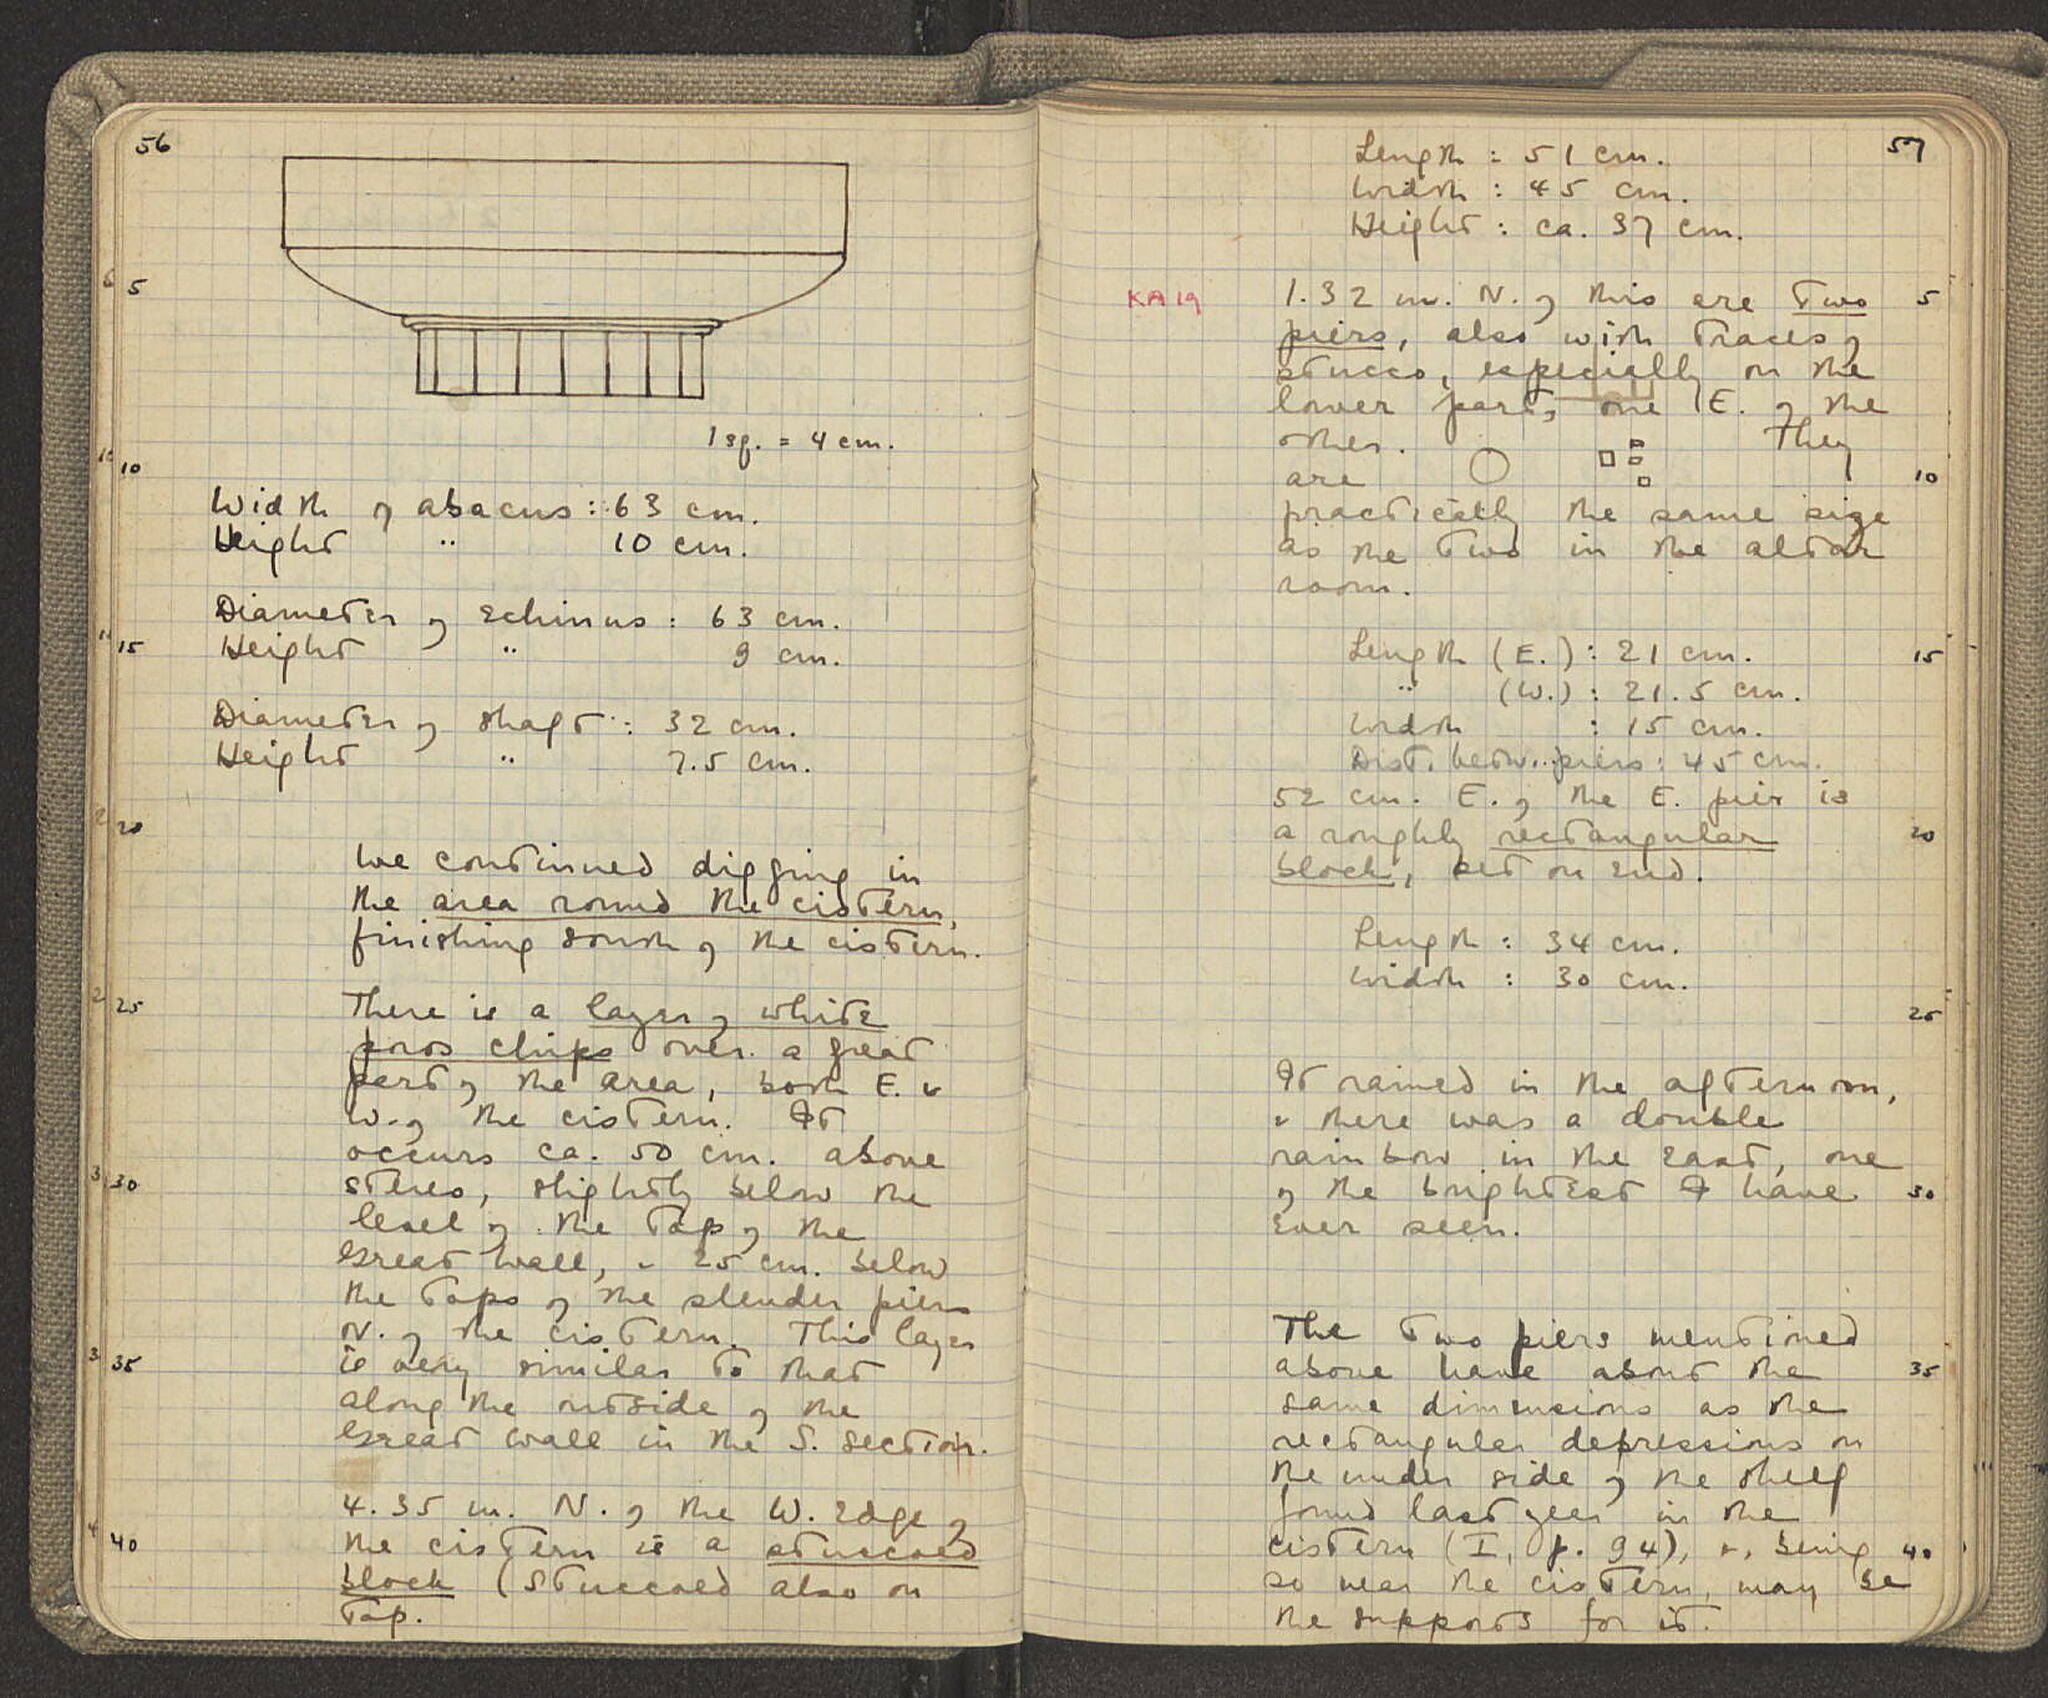 56
5
10
15
20
25
30
35
40
1 sq. = 4 cm.
Width of abacus : 63 cm.
Height " 10 cm.
Diameter of echinus : 63 cm.
Height " 9 cm.
Diameter of shaft : 32 cm.
Height " 7.5 cm.
We continued digging in
the area round the cistern,
finishing south of the cistern.
There is a layer of white
poros chips over a great
part of the area, both E. &
W. of the cistern. It
occurs ca. 50 cm. above
stereo, slightly below the
level of the top of the
Great Wall, & 25 cm. below
the tops of the slender piers
N. of the cistern. This layer
is very similar to that
along the outside of the
Great Wall in the S. section.
4.35 m. N. of the W. edge of
the cistern is a stuccoed
block (stuccoed also on
top.
57
Length : 51 cm.
Width : 45 cm.
Height : ca. 37 cm.
KA 19
1.32 m. N. of this are two 5
piers, also with traces of
stucco, especially on the
lower part, one E. of the
other. They
are 10
practically the same size
as the two in the altar
room.
Length (E.) : 21 cm. 15
" (W.) : 21.5 cm.
Width : 15 cm.
Dist. betw. piers : 45 cm.
52 cm. E. of the E. pier is
a roughly rectangular 20
block, set on end.
Length : 34 cm.
Width : 30 cm.
25
It rained in the afternoon,
& there was a double
rainbow in the east, one
of the brightest I have 30
ever seen.
The two piers mentioned
above have about the 35
same dimensions as the
rectangular depressions on
the under side of the shelf
found last year in the
cistern (I, p. 94), &, being 40
so near the cistern, may be
the supports for it.